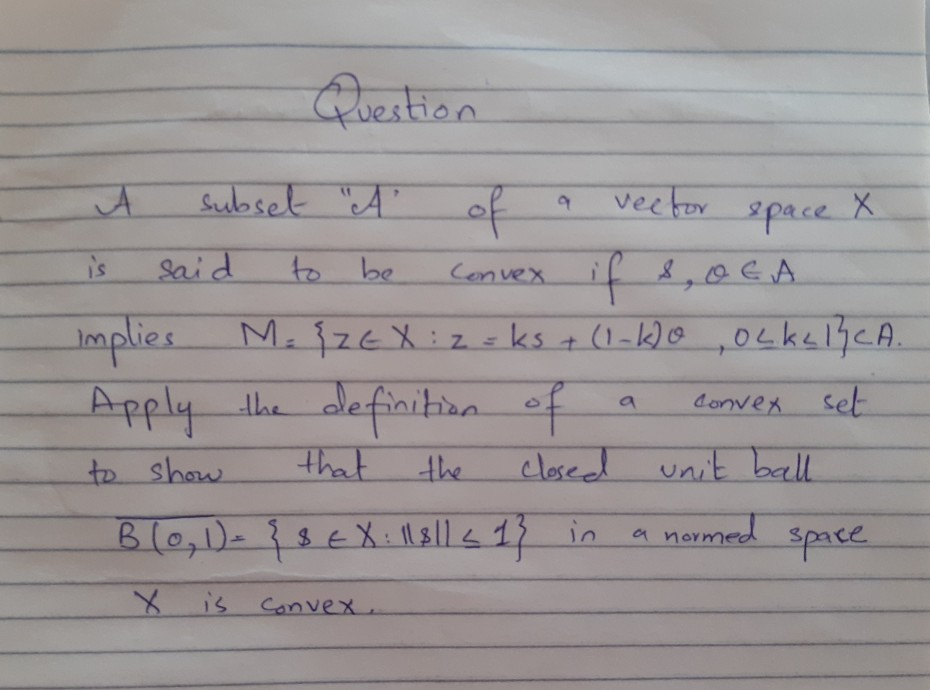 Question
A subset "A' of a vector space X
is said to be convex if s, θ ∈ A
implies M = {z ∈ X : z = ks + (1-k)θ , 0≤k≤1} ⊂ A.
Apply the definition of a convex set
to show that the closed unit ball
B̅(̅0̅,̅1̅)̅ = { s ∈ X : ||s|| ≤ 1} in a normed space
X is convex.